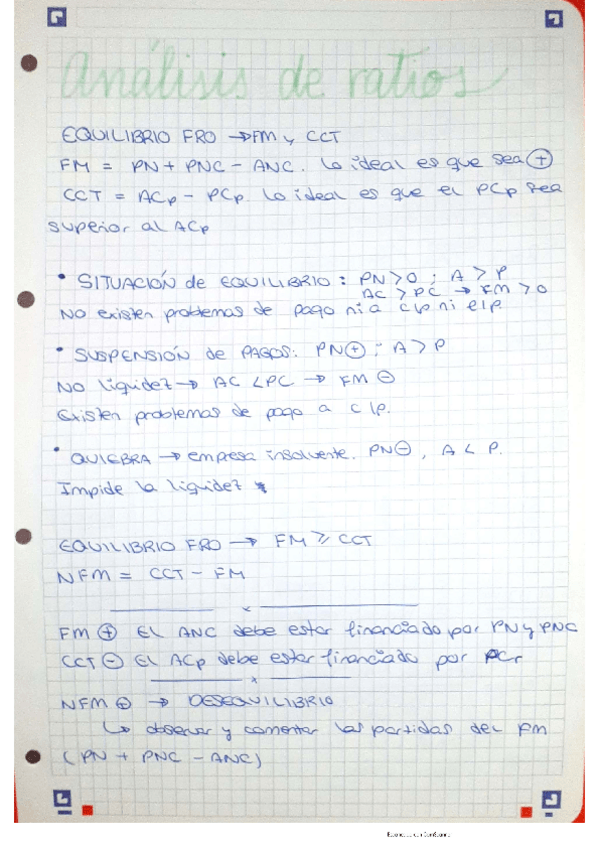 Análisis de ratios
EQUILIBRIO FRO → FM y CCT
FM = PN + PNC - ANC. Lo ideal es que sea ⊕
CCT = ACp - PCp. Lo ideal es que el PCp sea
superior al ACp
• SITUACIÓN de EQUILIBRIO: PN > 0 ; A > P
AC > PC → FM > 0
No existen problemas de pago ni a c/p ni e l/p.
• SUSPENSIÓN de PAGOS: PN ⊕ ; A > P
No liquidez → AC < PC → FM ⊖
Existen problemas de pago a c/p.
• QUIEBRA → empresa insolvente. PN ⊖, A < P.
Impide la liquidez *
EQUILIBRIO FRO → FM ≥ CCT
NFM = CCT - FM
FM ⊕ El ANC debe estar financiado por PN y PNC
CCT ⊖ El ACp debe estar financiado por
NFM ⊕ → DESEQUILIBRIO
↳ observar y comentar las partidas del FM
(PN + PNC - ANC)